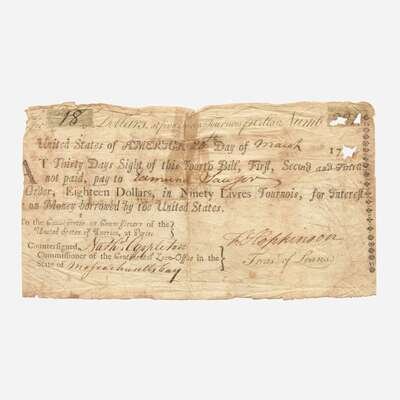 18 Dollars, Numb
United States of AMERICA, Day of March 17
AT Thirty Days Sight of this Fourth Bill, First, Second and Third
not paid, pay to
Order, Eighteen Dollars, in Ninety Livres Tournois, for Interest
on Money borrowed by the United States.
To the Commissioner or Commissioners of the
United States of America, at Paris.
Countersigned, Nathl. Appleton
Commissioner of the Continental Loan-Office in the
State of Massachusetts Bay
F. Hopkinson
Treas. of Loans